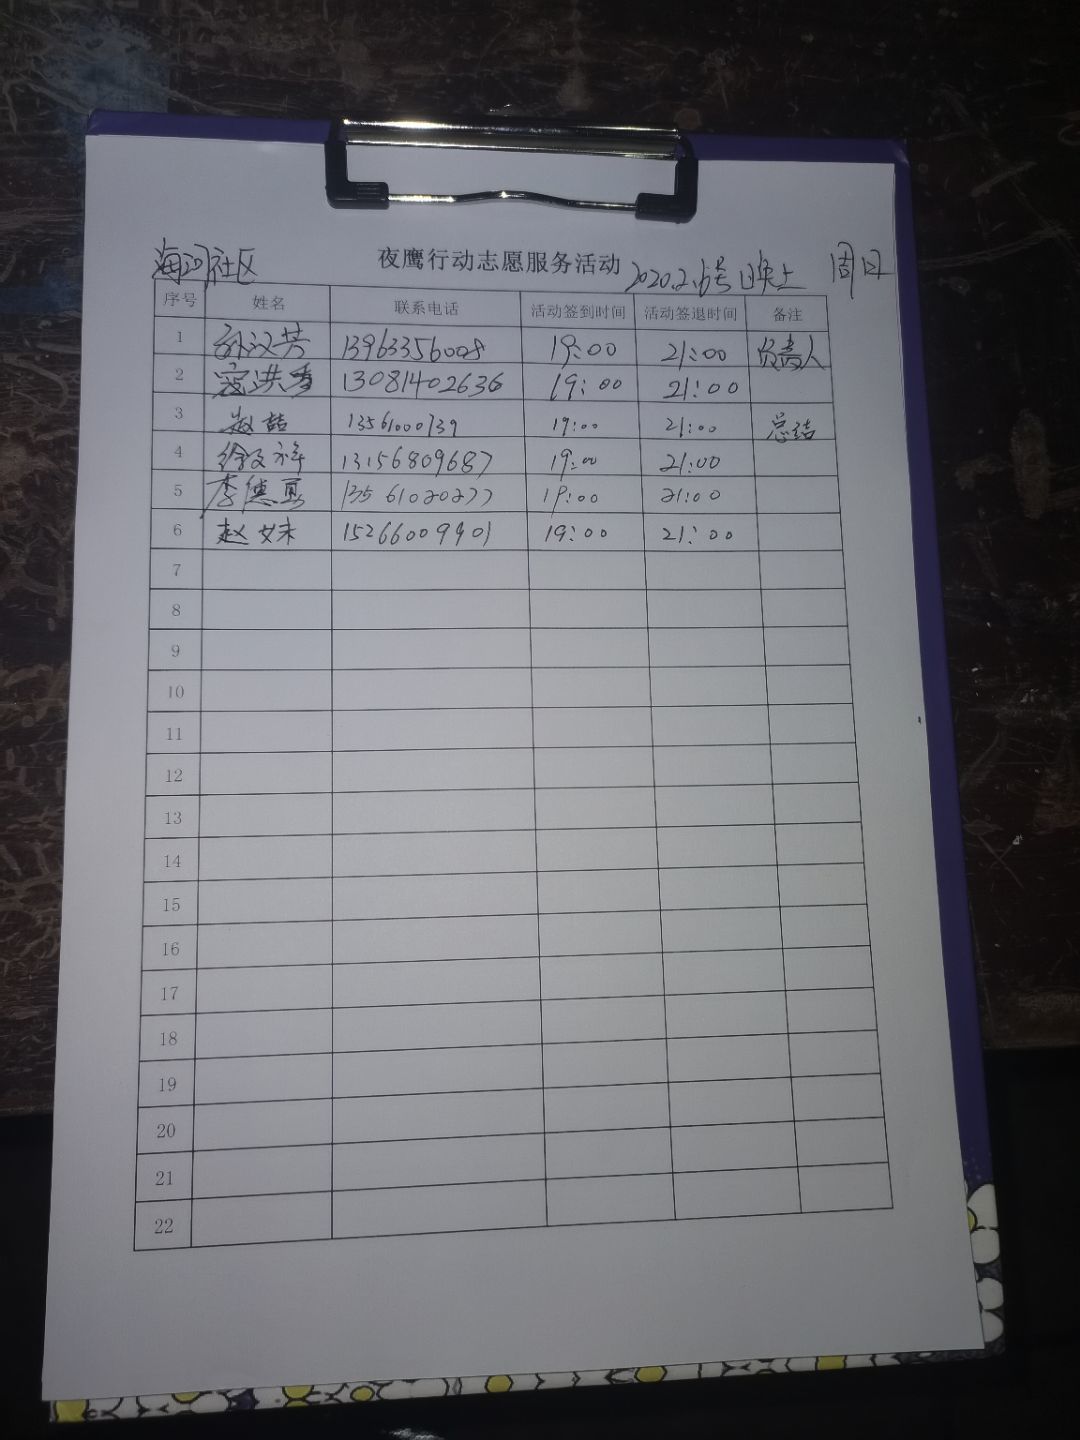 海河社区 夜鹰行动志愿服务活动 2020.2.16号晚上 周日
序号 姓名 联系电话 活动签到时间 活动签退时间 备注
1 孙汉芳 13963356008 19:00 21:00 负责人
2 寇洪香 13081402636 19:00 21:00
3 赵喆 13561000739 19:00 21:00 总结
4 徐文祥 13156809687 19:00 21:00
5 李德夏 13561020277 19:00 21:00
6 赵妹 15266009901 19:00 21:00
7
8
9
10
11
12
13
14
15
16
17
18
19
20
21
22